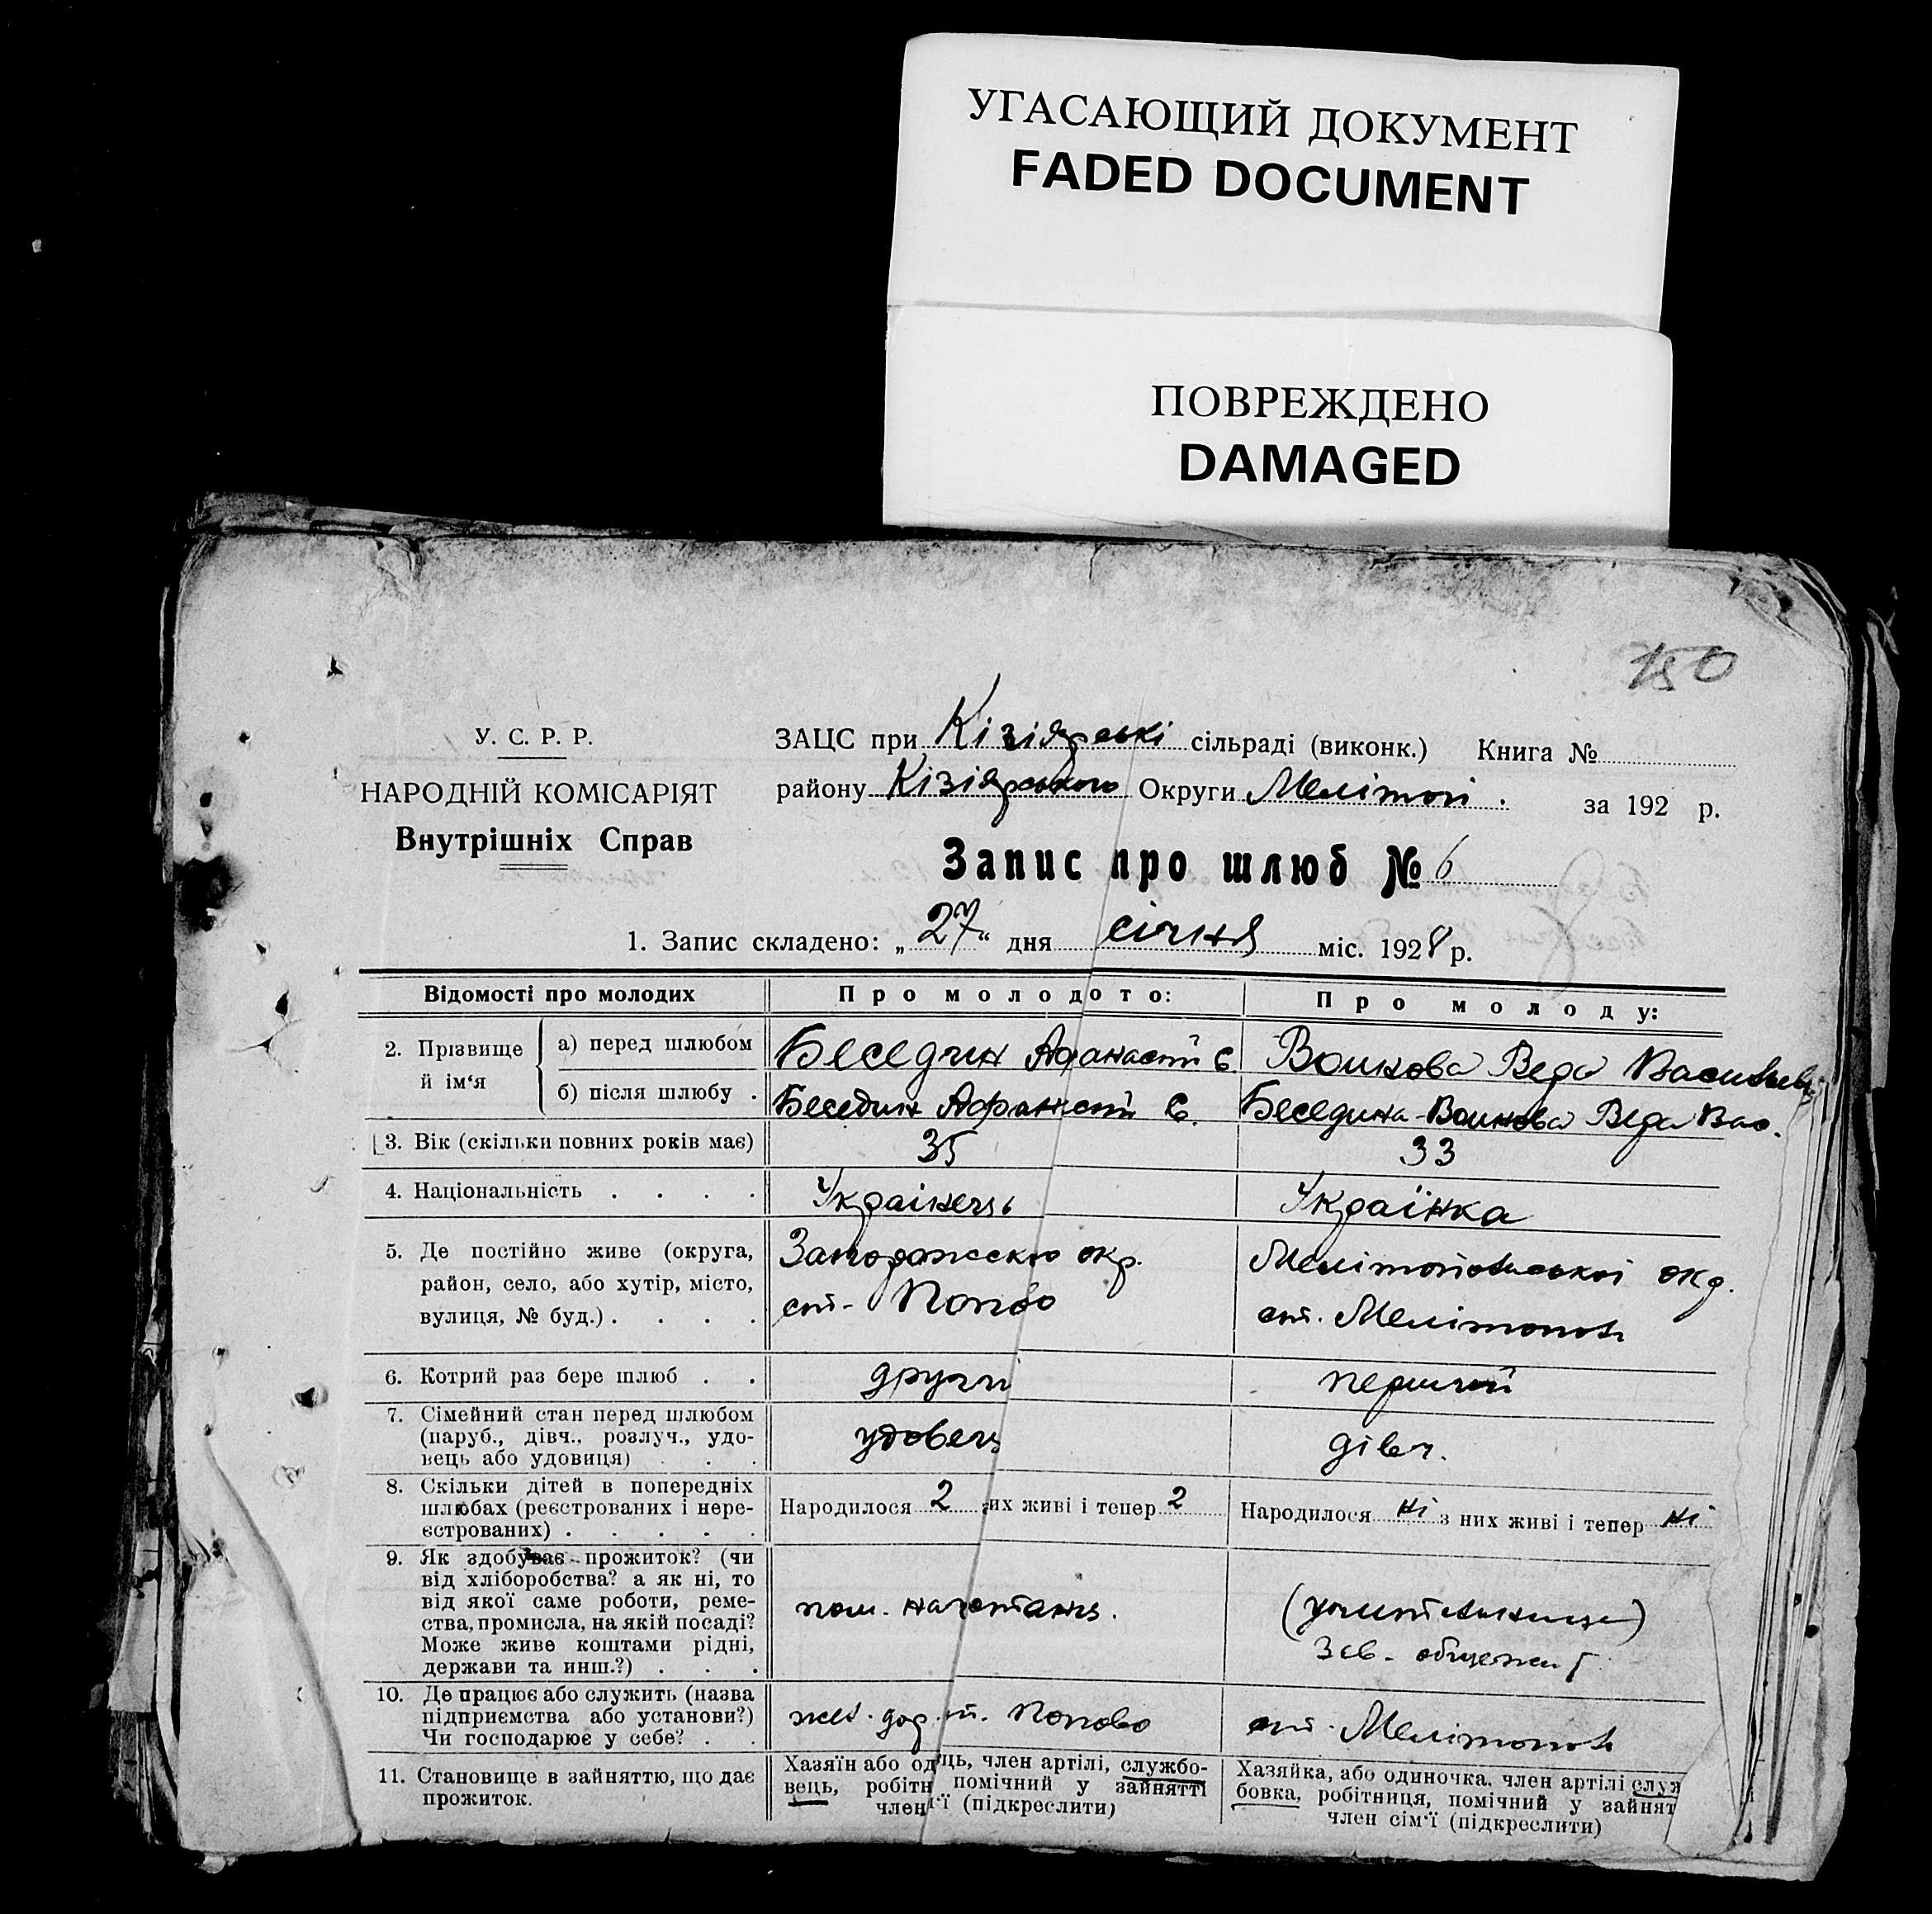 УГАСАЮЩИЙ ДОКУМЕНТ
FADED DOCUMENT
ПОВРЕЖДЕНО
DAMAGED
150
У. С. Р. Р.
НАРОДНІЙ КОМІСАРІЯТ
Внутрішніх Справ
ЗАЦС при Кізіярські сільраді (виконк.) Книга №
району Кізіярського Округи Мелітоп. за 192 р.
Запис про шлюб № 6
1. Запис складено: „27“ дня січня міс. 1928 р.
Відомості про молодих
Про молодого:
Про молоду:
2. Прізвище й ім‘я
а) перед шлюбом
Беседин Афанасій Є
Воинова Вера Васильев.
б) після шлюбу .
Беседин Афанасій Є.
Беседина-Воинова Вера Вас.
3. Вік (скільки повних років має)
35
33
4. Національність . . . .
Українець
Українка
5. Де постійно живе (округа,
район, село, або хутір, місто,
вулиця, № буд.) . . . .
Запоріжжскою окр.
ст. Попово
Мелітопольської окр.
ст. Мелітополь
6. Котрий раз бере шлюб . .
другий
перший
7. Сімейний стан перед шлюбом
(паруб., дівч., розлуч., удо-
вець або удовиця) . . .
удовець
дівч.
8. Скільки дітей в попередніх
шлюбах (реєстрованих і нере-
єстрованих) . . . . .
Народилося 2 них живі і тепер 2
Народилося ні з них живі і тепер ні
9. Як здобуває прожиток? (чи
від хліборобства? а як ні, то
від якої саме роботи, реме-
ства, промисла, на якій посаді?
Може живе коштами рідні,
держави та инш.?) . . .
пом. нач. станц.
(учительница)
Зав. общежит
10. Де працює або служить (назва
підприємства або установи?)
Чи господарює у себе? . .
жел. дор. ст. Попово
ст. Мелітополь
11. Становище в зайняттю, що дає
прожиток.
Хазяїн або од ць, член артілі, службо-
вець, робітн помічний у зайнятті
член ї (підкреслити)
Хазяйка, або одиночка, член артілі служ
бовка, робітниця, помічний у зайнят
член сім‘ї (підкреслити)